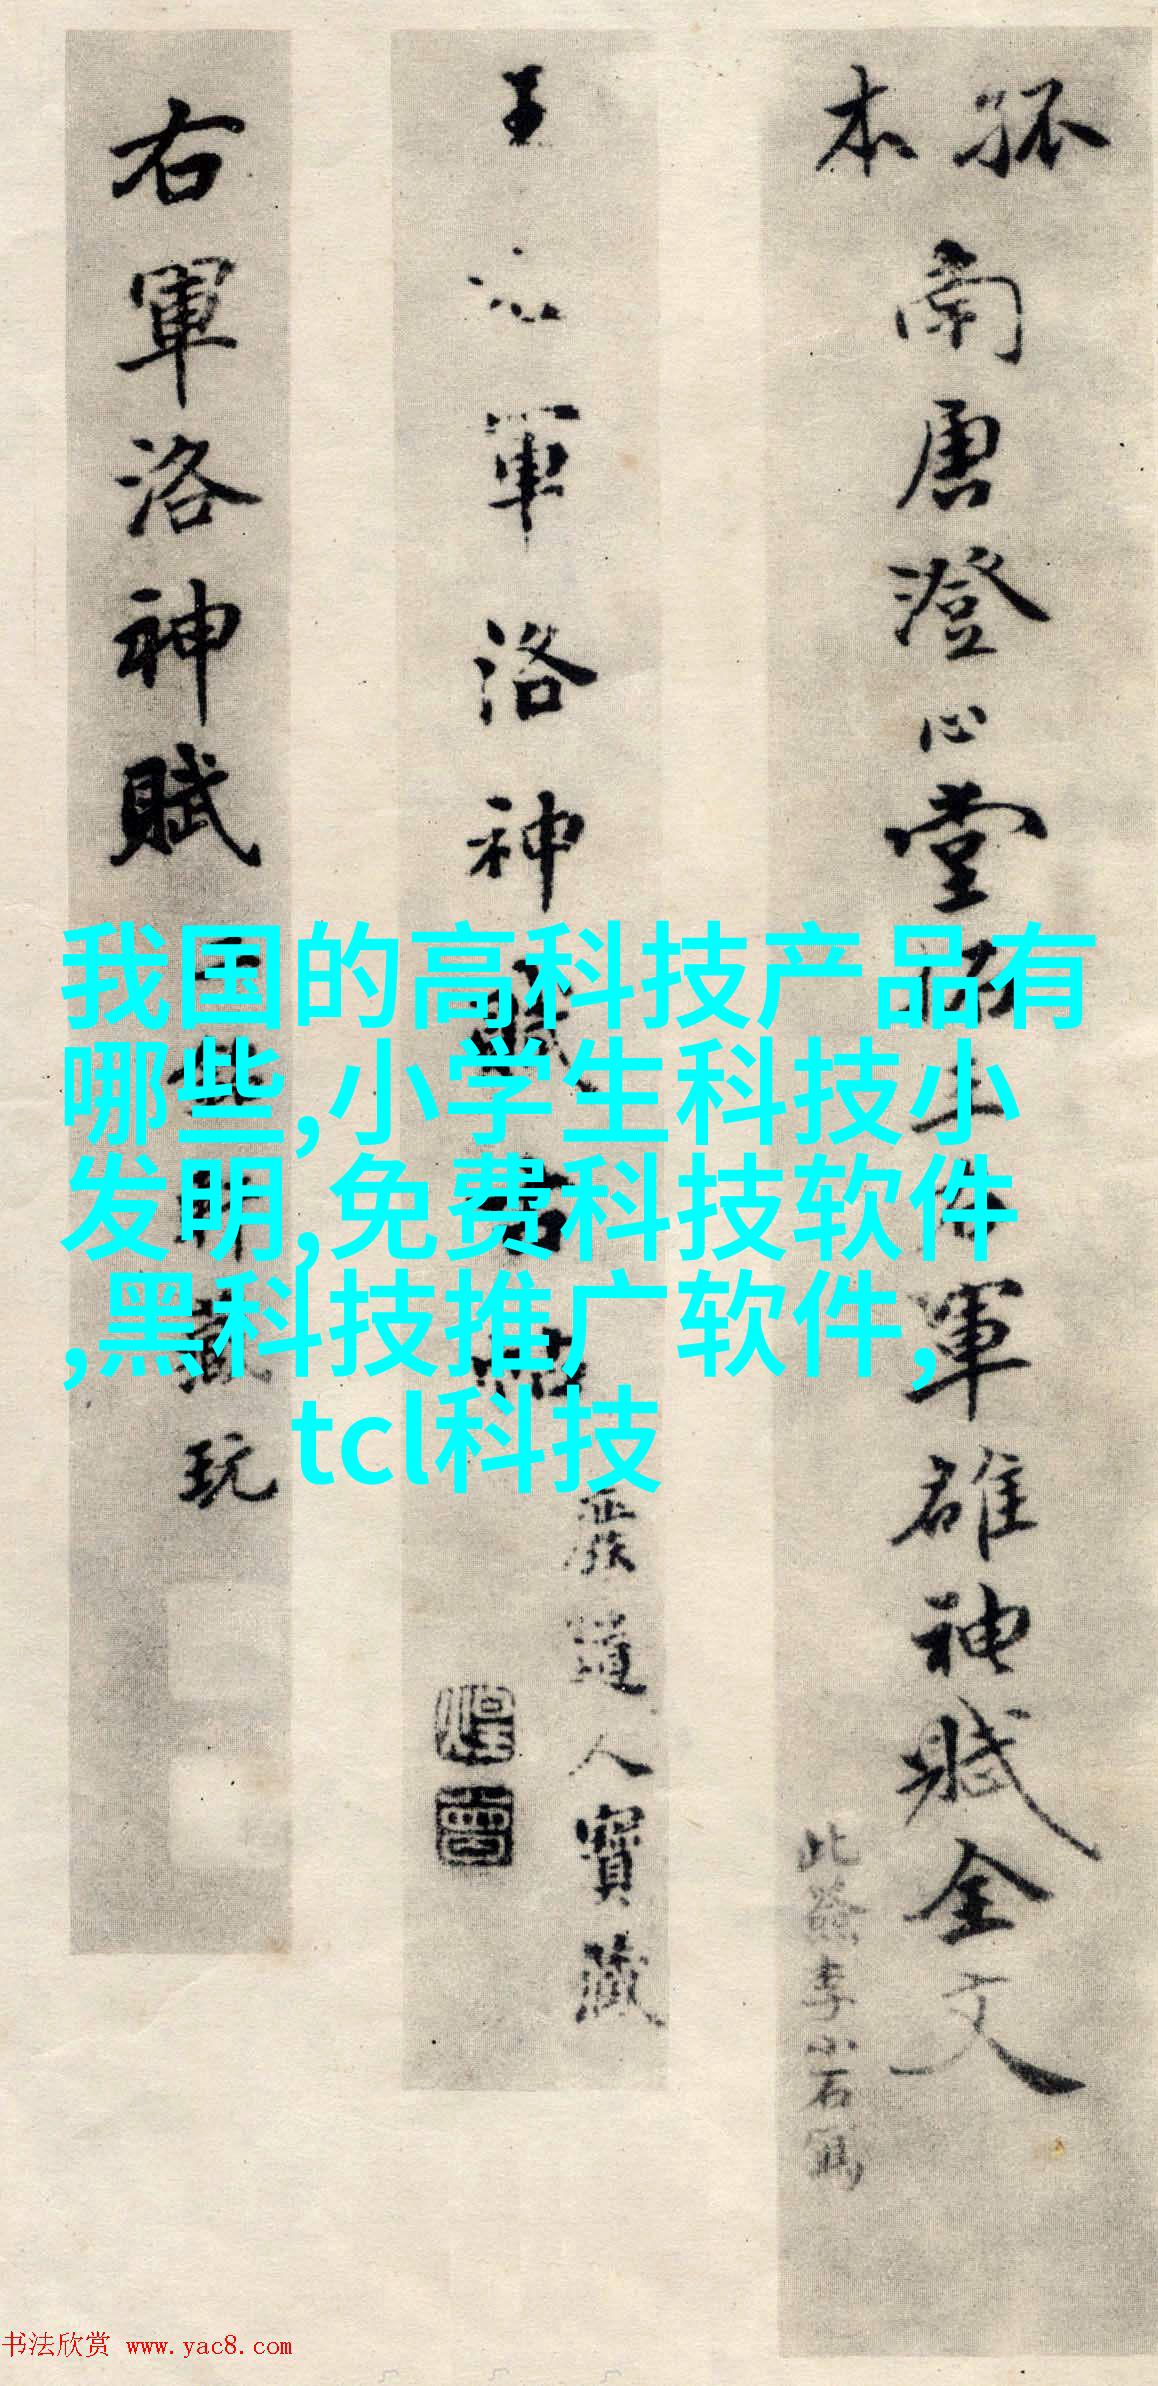 孤本
南唐澄心堂拓王右軍雄神賦全文
此簽李小石寫
王右軍洛神賦
嚴道人寶藏
右軍洛神賦
玩
我国的高科技产品有
哪些,小学生科技小
发明,免费科技软件
,黑科技推广软件,
tcl科技
书法欣赏 www.yac8.com